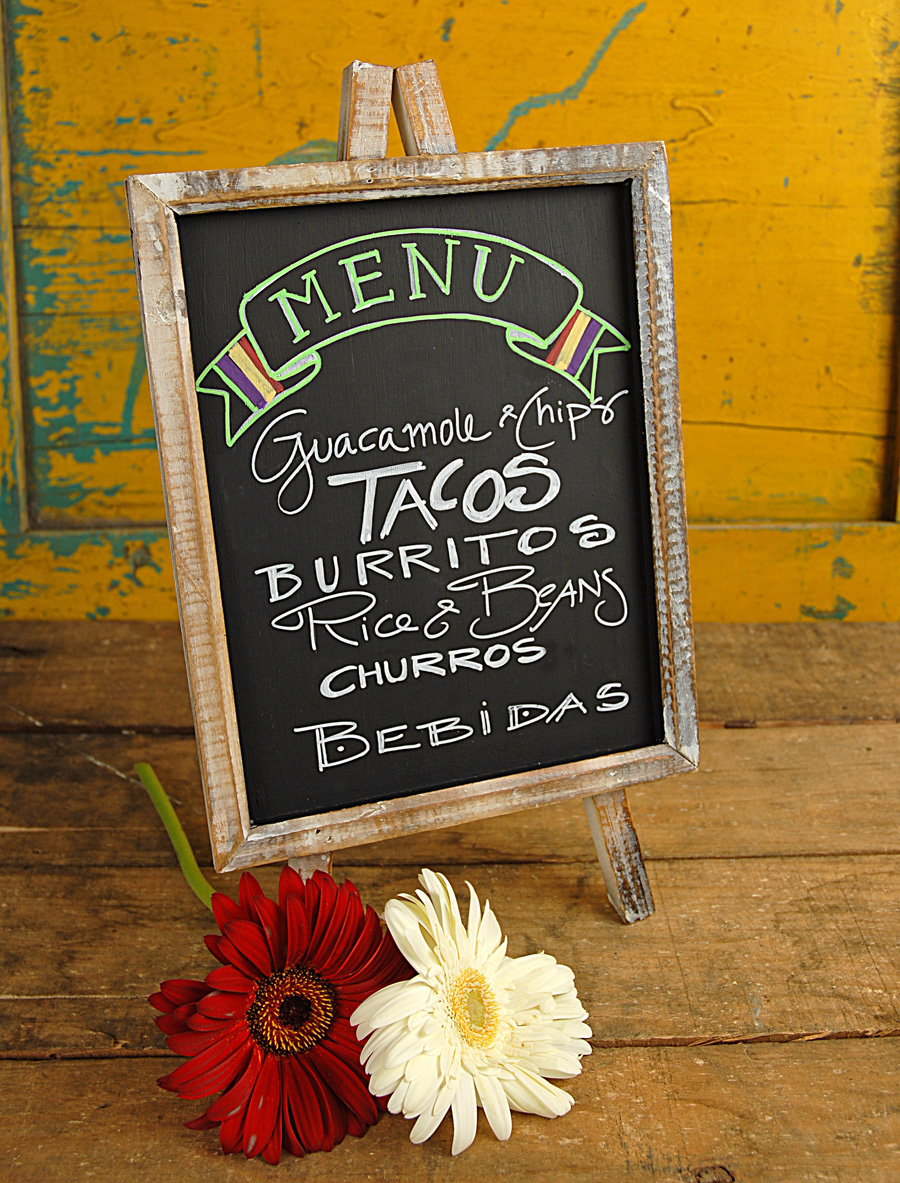 MENU
Guacamole & Chips
TACOS
BURRITOS
Rice & BEANS
CHURROS
BEBiDAS